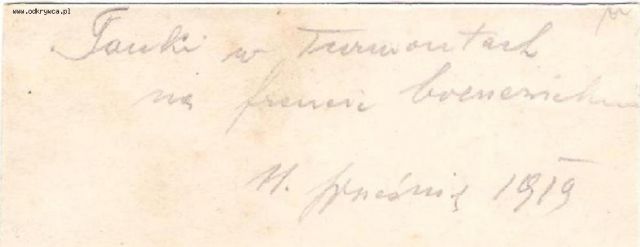 www.odkrywca.pl
Tanki w Turmontach
na froncie
11. Września 1919